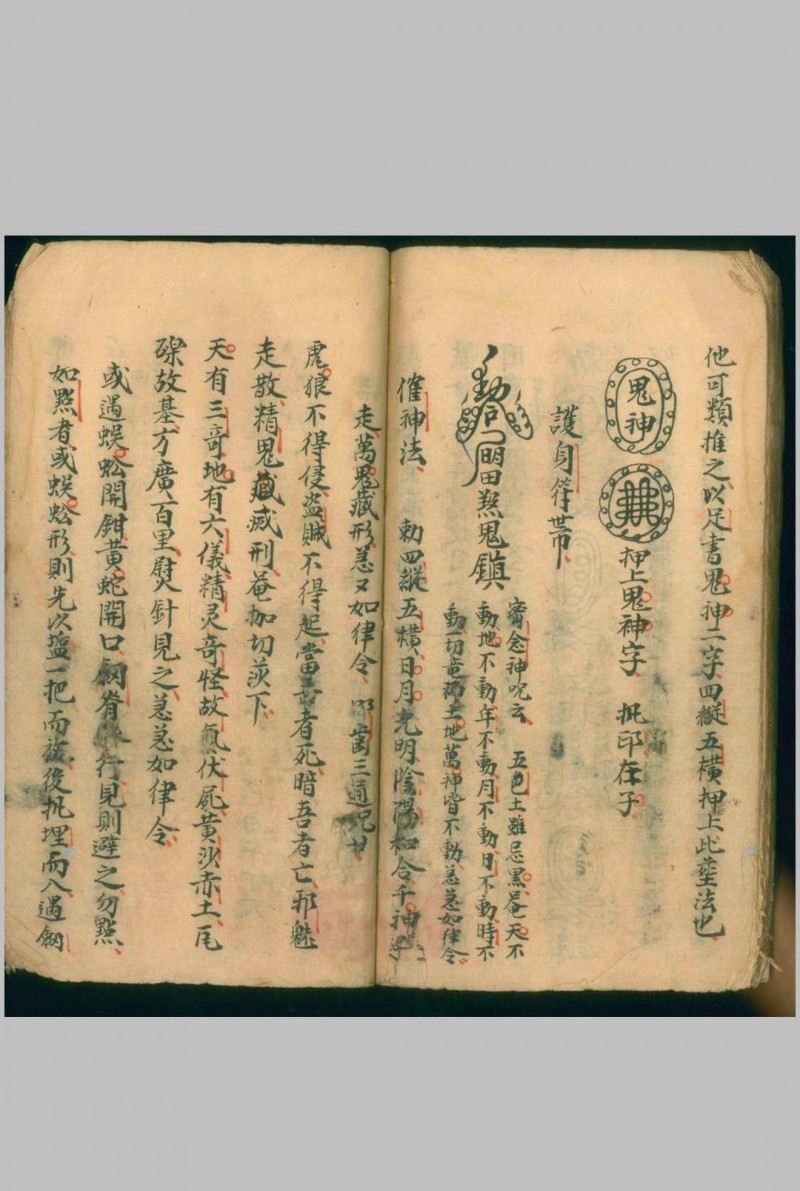 他可類推之以足書鬼神二字四縱五橫押上此塟法也
鬼神
押上鬼神字 執印在子
護身符带
動 鬼鎮
密念神咒云 五色土雖忌黑唵天不
動地不動年不動月不動日不動時不
動一切竜 土地萬神皆不動急急如律令
催神法 勅四縱五橫日月光明陰陽和合千神
走萬鬼藏形急々如律令 叩齒三通咒曰
虎狼不得侵盗賊不得起當吾者死暗吾者亡邪魅
走散精鬼藏滅刑唵加切 下
天有三竒地有六儀精灵竒怪故氣伏屍黄沙赤土尾
礫故基方廣百里熨針見之急急如律令
或遇蜈蚣開鉗黄蛇開口 脊 行見則避之勿點
如點者或蜈蚣形則先以塩一把而 後执埋而入遇